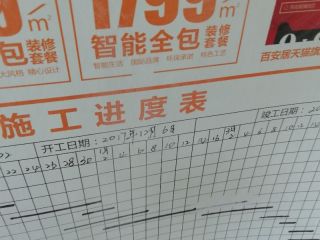 1799 /m²
/m²
全包 装修套餐
智能全包 装修套餐
大风格 精心设计
智能生活 国际品牌 环保承诺 特色工艺
百安居天猫旗
施工进度表
开工日期：2017年12月6日
竣工日期：20
22 24 26 28 30 1月2 4 6 8 10 12 14 16
2 4 6 8 10 12